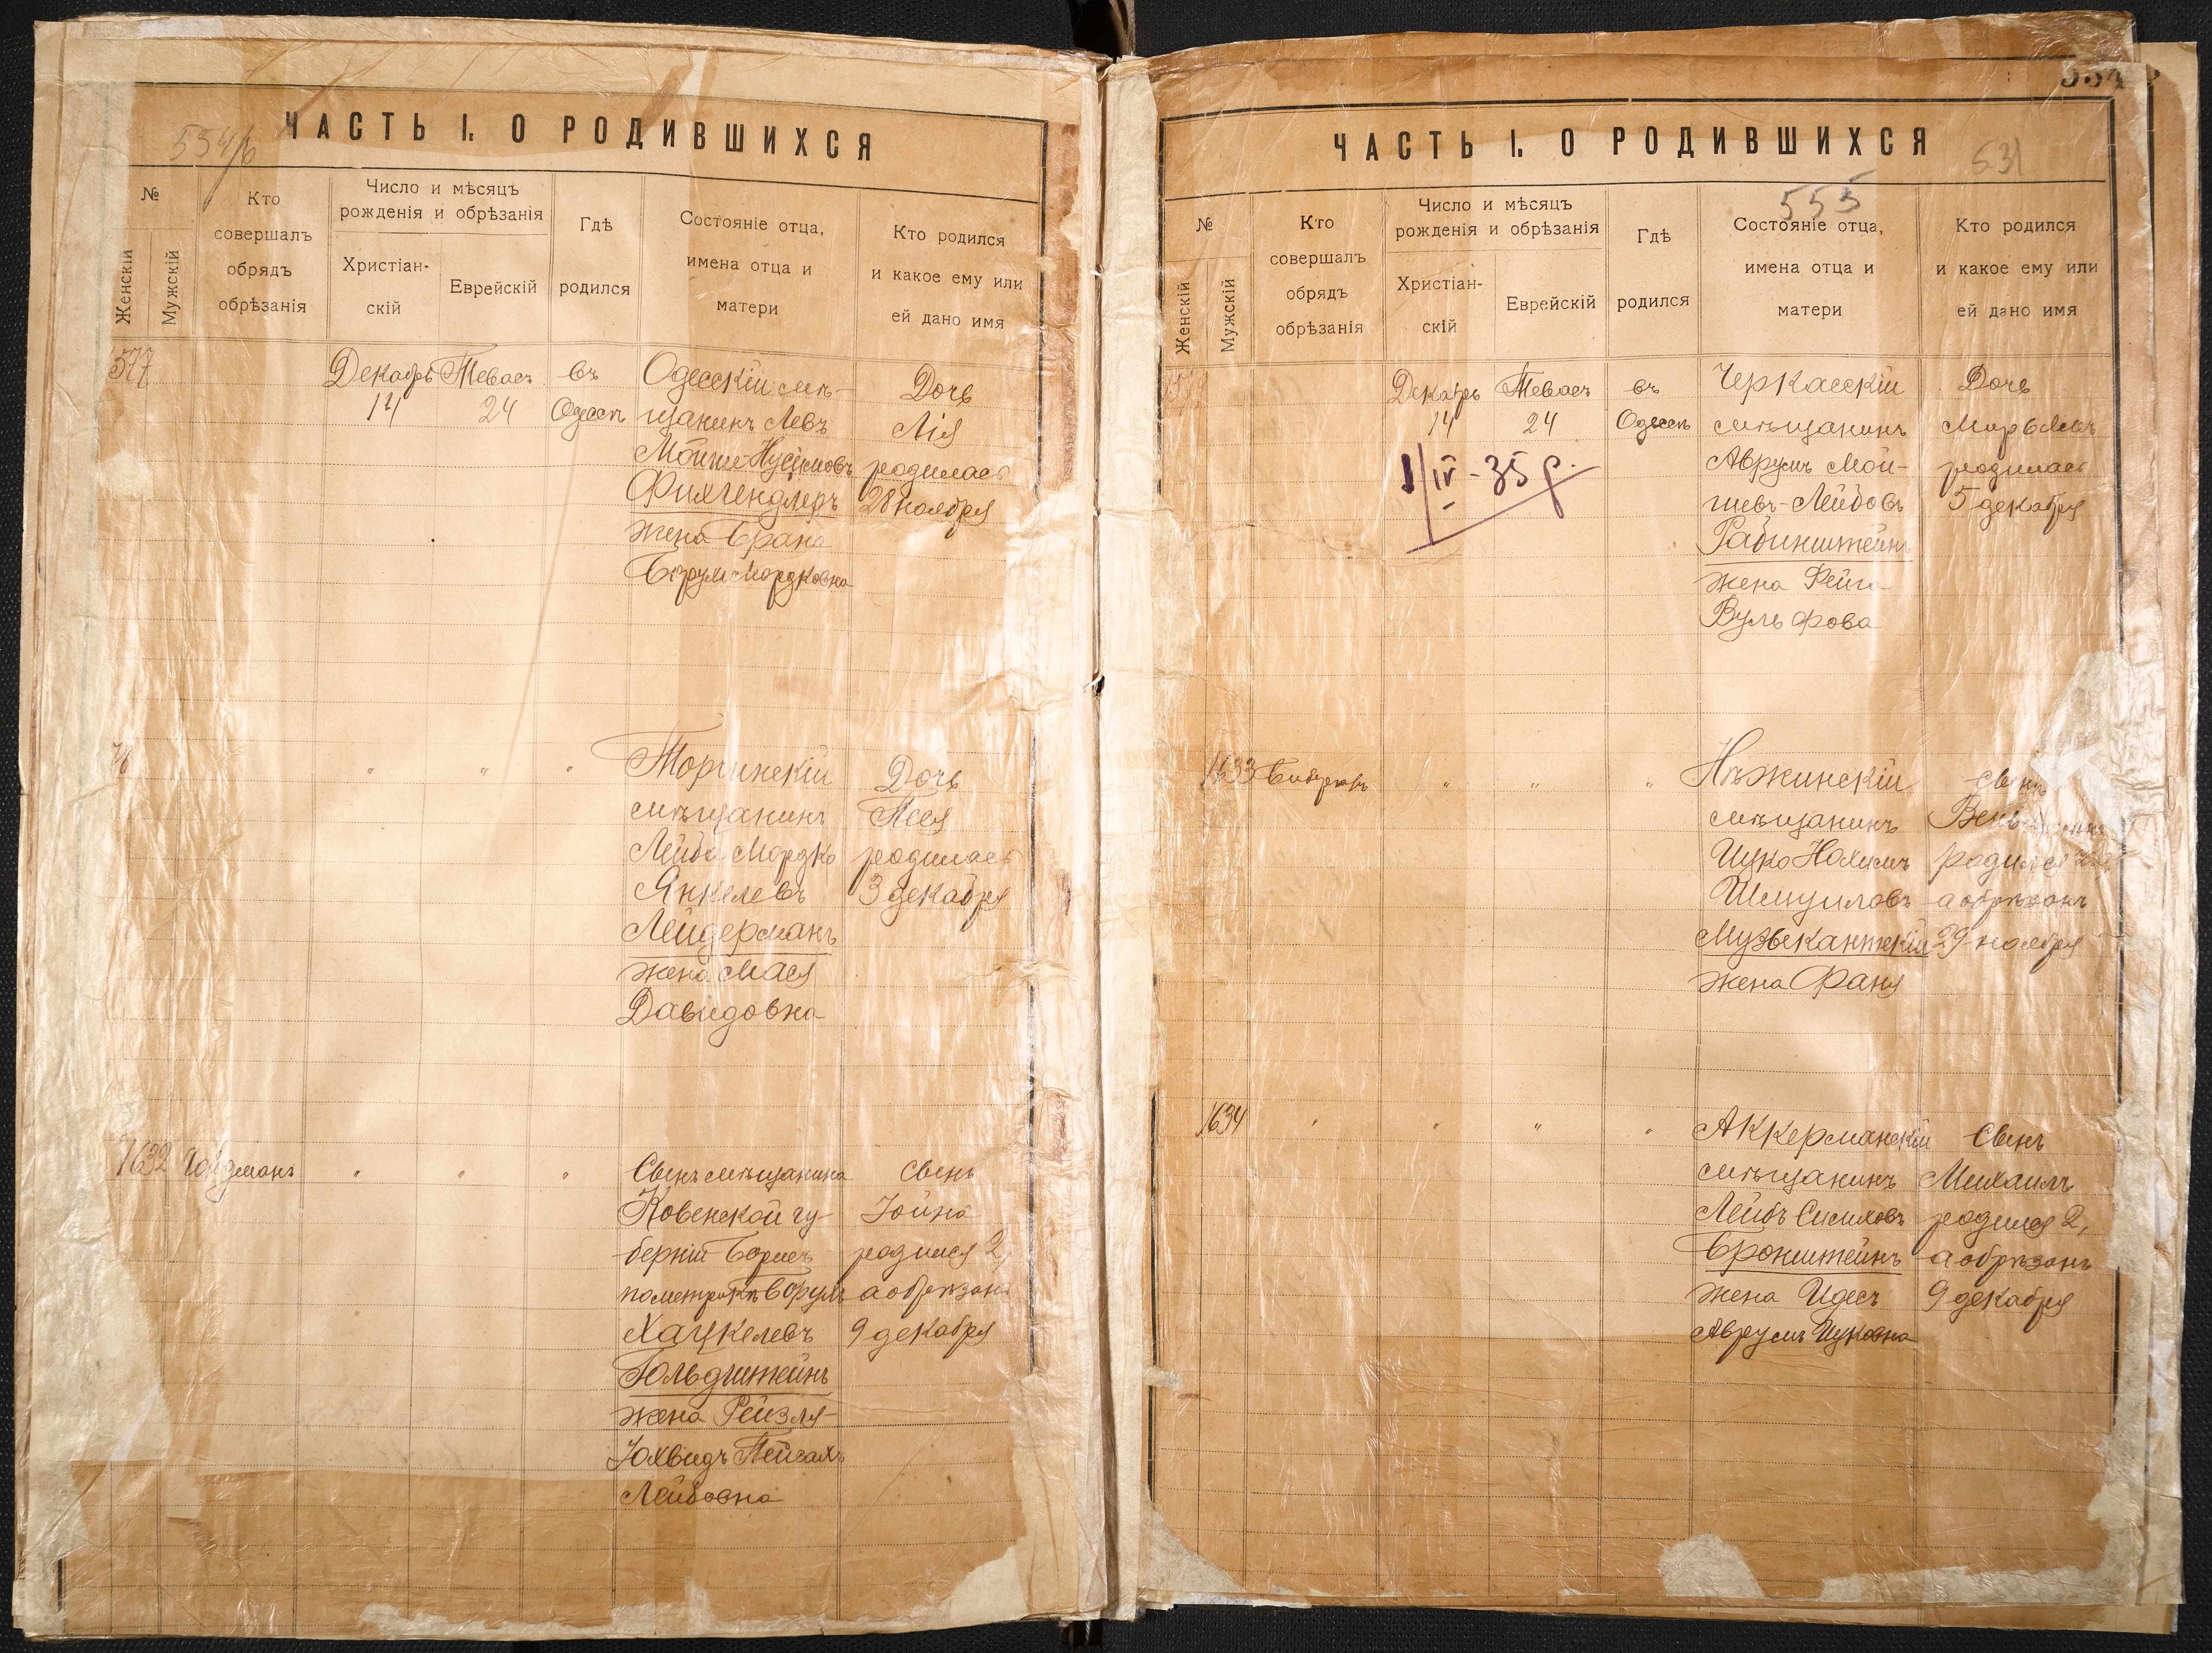 ЧАСТЬ I. О РОДИВШИХСЯ
№
Женскій
Мужскій
Кто
совершалъ
обрядъ
обрѣзанія
Число и мѣсяцъ
рожденія и обрѣзанія
Христіан-
скій
Еврейскій
Гдѣ
родился
Состояніе отца,
имена отца и
матери
Кто родился
и какое ему или
ей дано имя
577
Декабрь
14
Тевасъ
24
въ
Одессѣ
Одесскій мѣ-
щанинъ Левъ
Мойше-Нусимовъ
Фихгендлеръ
жена Брана
Борухъ Мордковна
Дочь
Лія
родилась
28 ноября
" " "
мѣщанинъ
Лейба Мордко
Янкелевъ
Лейдерманъ
жена Мася
Давидовна
Дочь
Песя
родилась
3 декабря
1632
" " "
Сынъ мѣщанина
Ковенской гу-
берніи Борисъ
Хацкелевъ
Гольдштейнъ
жена Рейзля-
Юхвидъ Пейсахъ
Лейбовна
Сынъ
Іойна
родился 2,
а обрѣзанъ
9 декабря
ЧАСТЬ I. О РОДИВШИХСЯ
531
555
№
Женскій
Мужскій
Кто
совершалъ
обрядъ
обрѣзанія
Число и мѣсяцъ
рожденія и обрѣзанія
Христіан-
скій
Еврейскій
Гдѣ
родился
Состояніе отца,
имена отца и
матери
Кто родился
и какое ему или
ей дано имя
Декабрь
14
1/IV-35 р.
Тевасъ
24
въ
Одессѣ
Черкасскій
мѣщанинъ
Аврумъ Мой-
шевъ-Лейбовъ
Рабинштейнъ
жена Фейга
Вульфова
Дочь
Мирьямъ
родилась
5 декабря
1633
" " "
Нѣжинскій
мѣщанинъ
Ицко Нахимъ
Шмуиловъ
Музыкантскій
жена Фаня
Сынъ
родился
а обрѣзанъ
29 ноября
1634
" " " "
Аккерманскій
мѣщанинъ
Лейбъ Симховъ
Бронштейнъ
жена Идесъ
Аврумъ Ицковна
Сынъ
Михаилъ
родился 2,
а обрѣзанъ
9 декабря